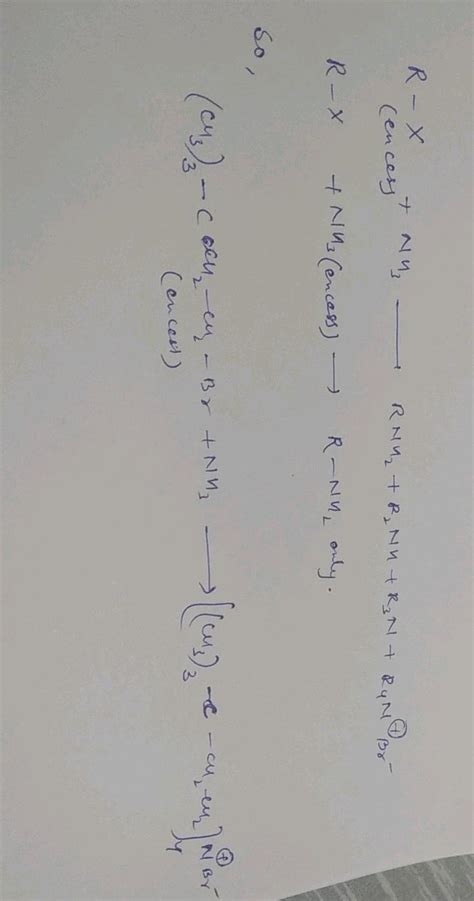 R-X + NH₃ ⟶ RNH₂ + R₂NH + R₃N + R₄N⊕Br⁻
(encess)
R-X + NH₃(encess) ⟶ R-NH₂ only.
So,
(CH₃)₃-C CH₂-CH₂-Br + NH₃ ⟶ [(CH₃)₃-C-CH₂-CH₂]₄N⊕Br⁻
(encess)